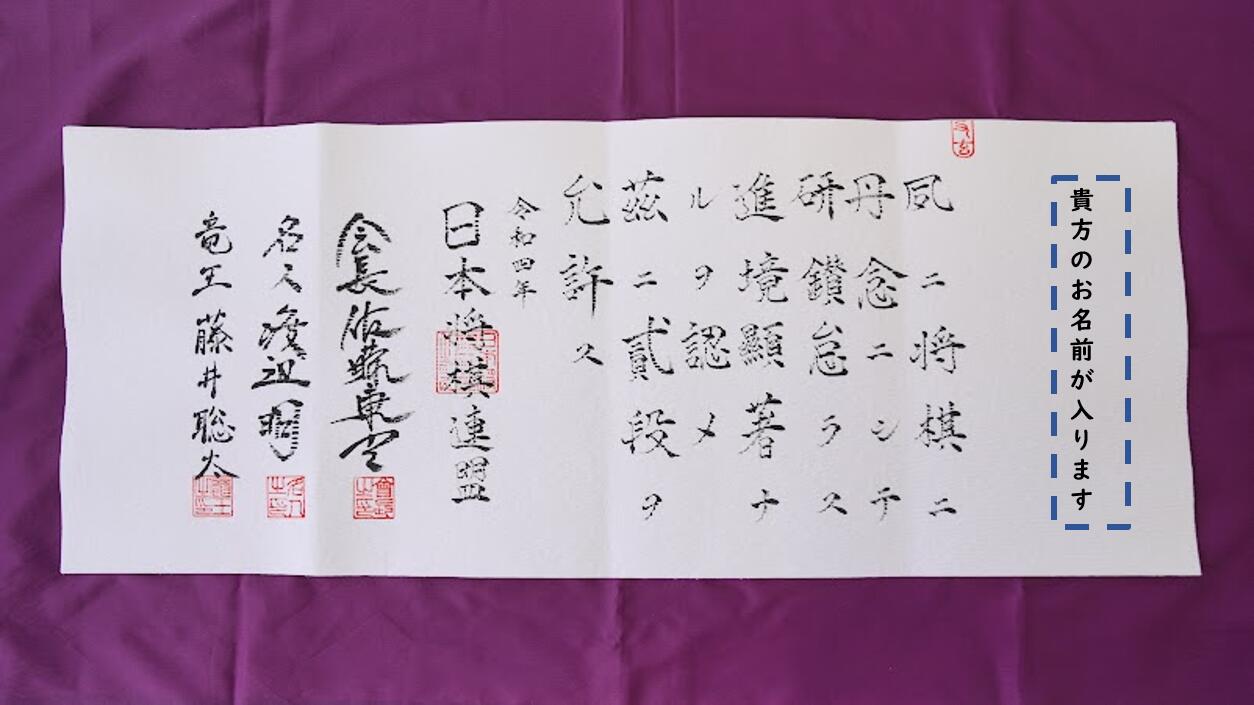 貴方のお名前が入ります
夙ニ将棋ニ
丹念ニシテ
研鑽怠ラス
進境顯著ナ
ルヲ認メ
茲ニ貳段ヲ
允許ス
令和四年
日本将棋連盟
会長佐藤康光
名人渡辺明
竜王藤井聡太